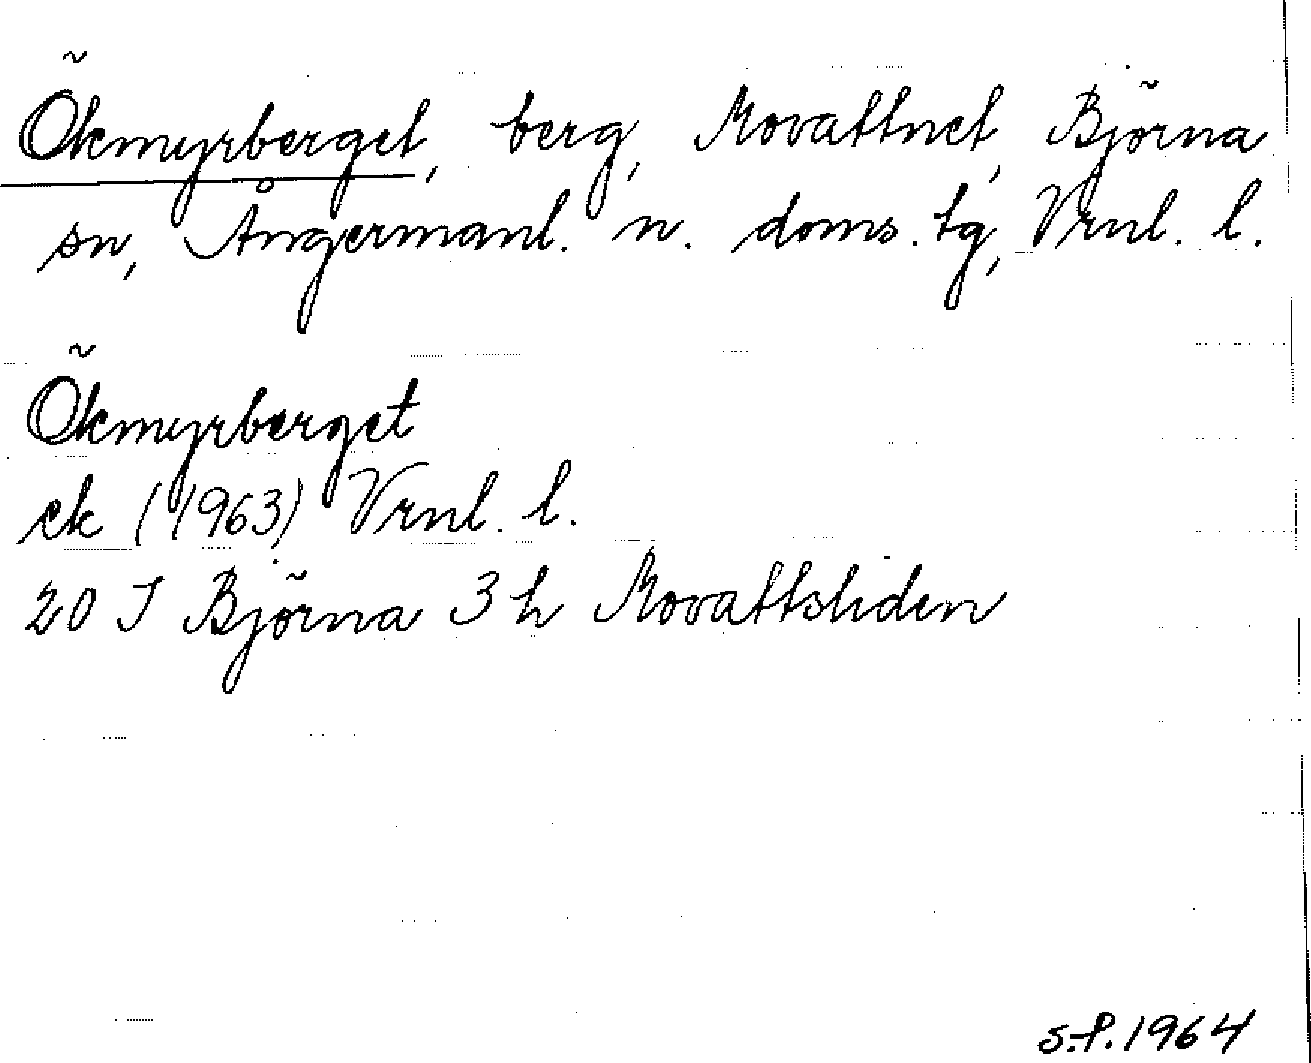 Ökmyrberget, berg, Movattnet, Björna
sn, Ångermanl. n. doms. tg, Vrnl. l.
Ökmyrberget
ek (1963) Vrnl. l.
20 I Björna 3 h Movattsliden
S.F. 1964